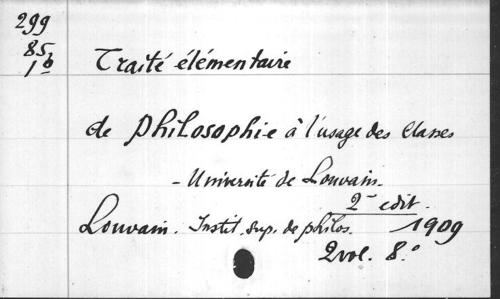 299
85
1b
Traité élémentaire
de Philosophie à l'usage des Classes
- Université de Louvain -
2e edit.
Louvain. Instit. sup. de philos. 1909
2 vol. 8.°